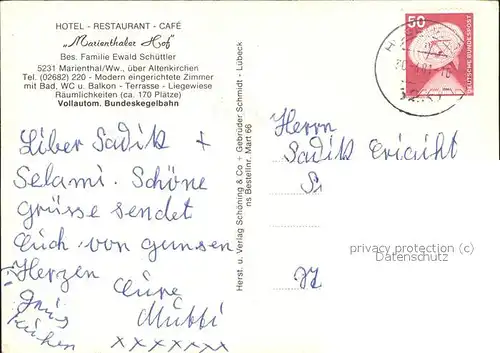 HOTEL - RESTAURANT - CAFÉ
„Marienthaler Hof"
Bes. Familie Ewald Schüttler
5231 Marienthal/Ww., über Altenkirchen
Tel. (02682) 220 - Modern eingerichtete Zimmer
mit Bad, WC u. Balkon - Terrasse - Liegewiese
Räumlichkeiten (ca. 170 Plätze)
Vollautom. Bundeskegelbahn
Liber Sadik +
Selami. Schöne
grüsse sendet
Euch von gansen
Herzen Eure
Mutti
xxxxxxx
Herst. u. Verlag Schöning & Co + Gebrüder Schmidt - Lübeck
ns Bestellnr. Mart 66
50
DEUTSCHE BUNDESPOST
Herrn
Sadik
privacy protection (c)
Datenschutz